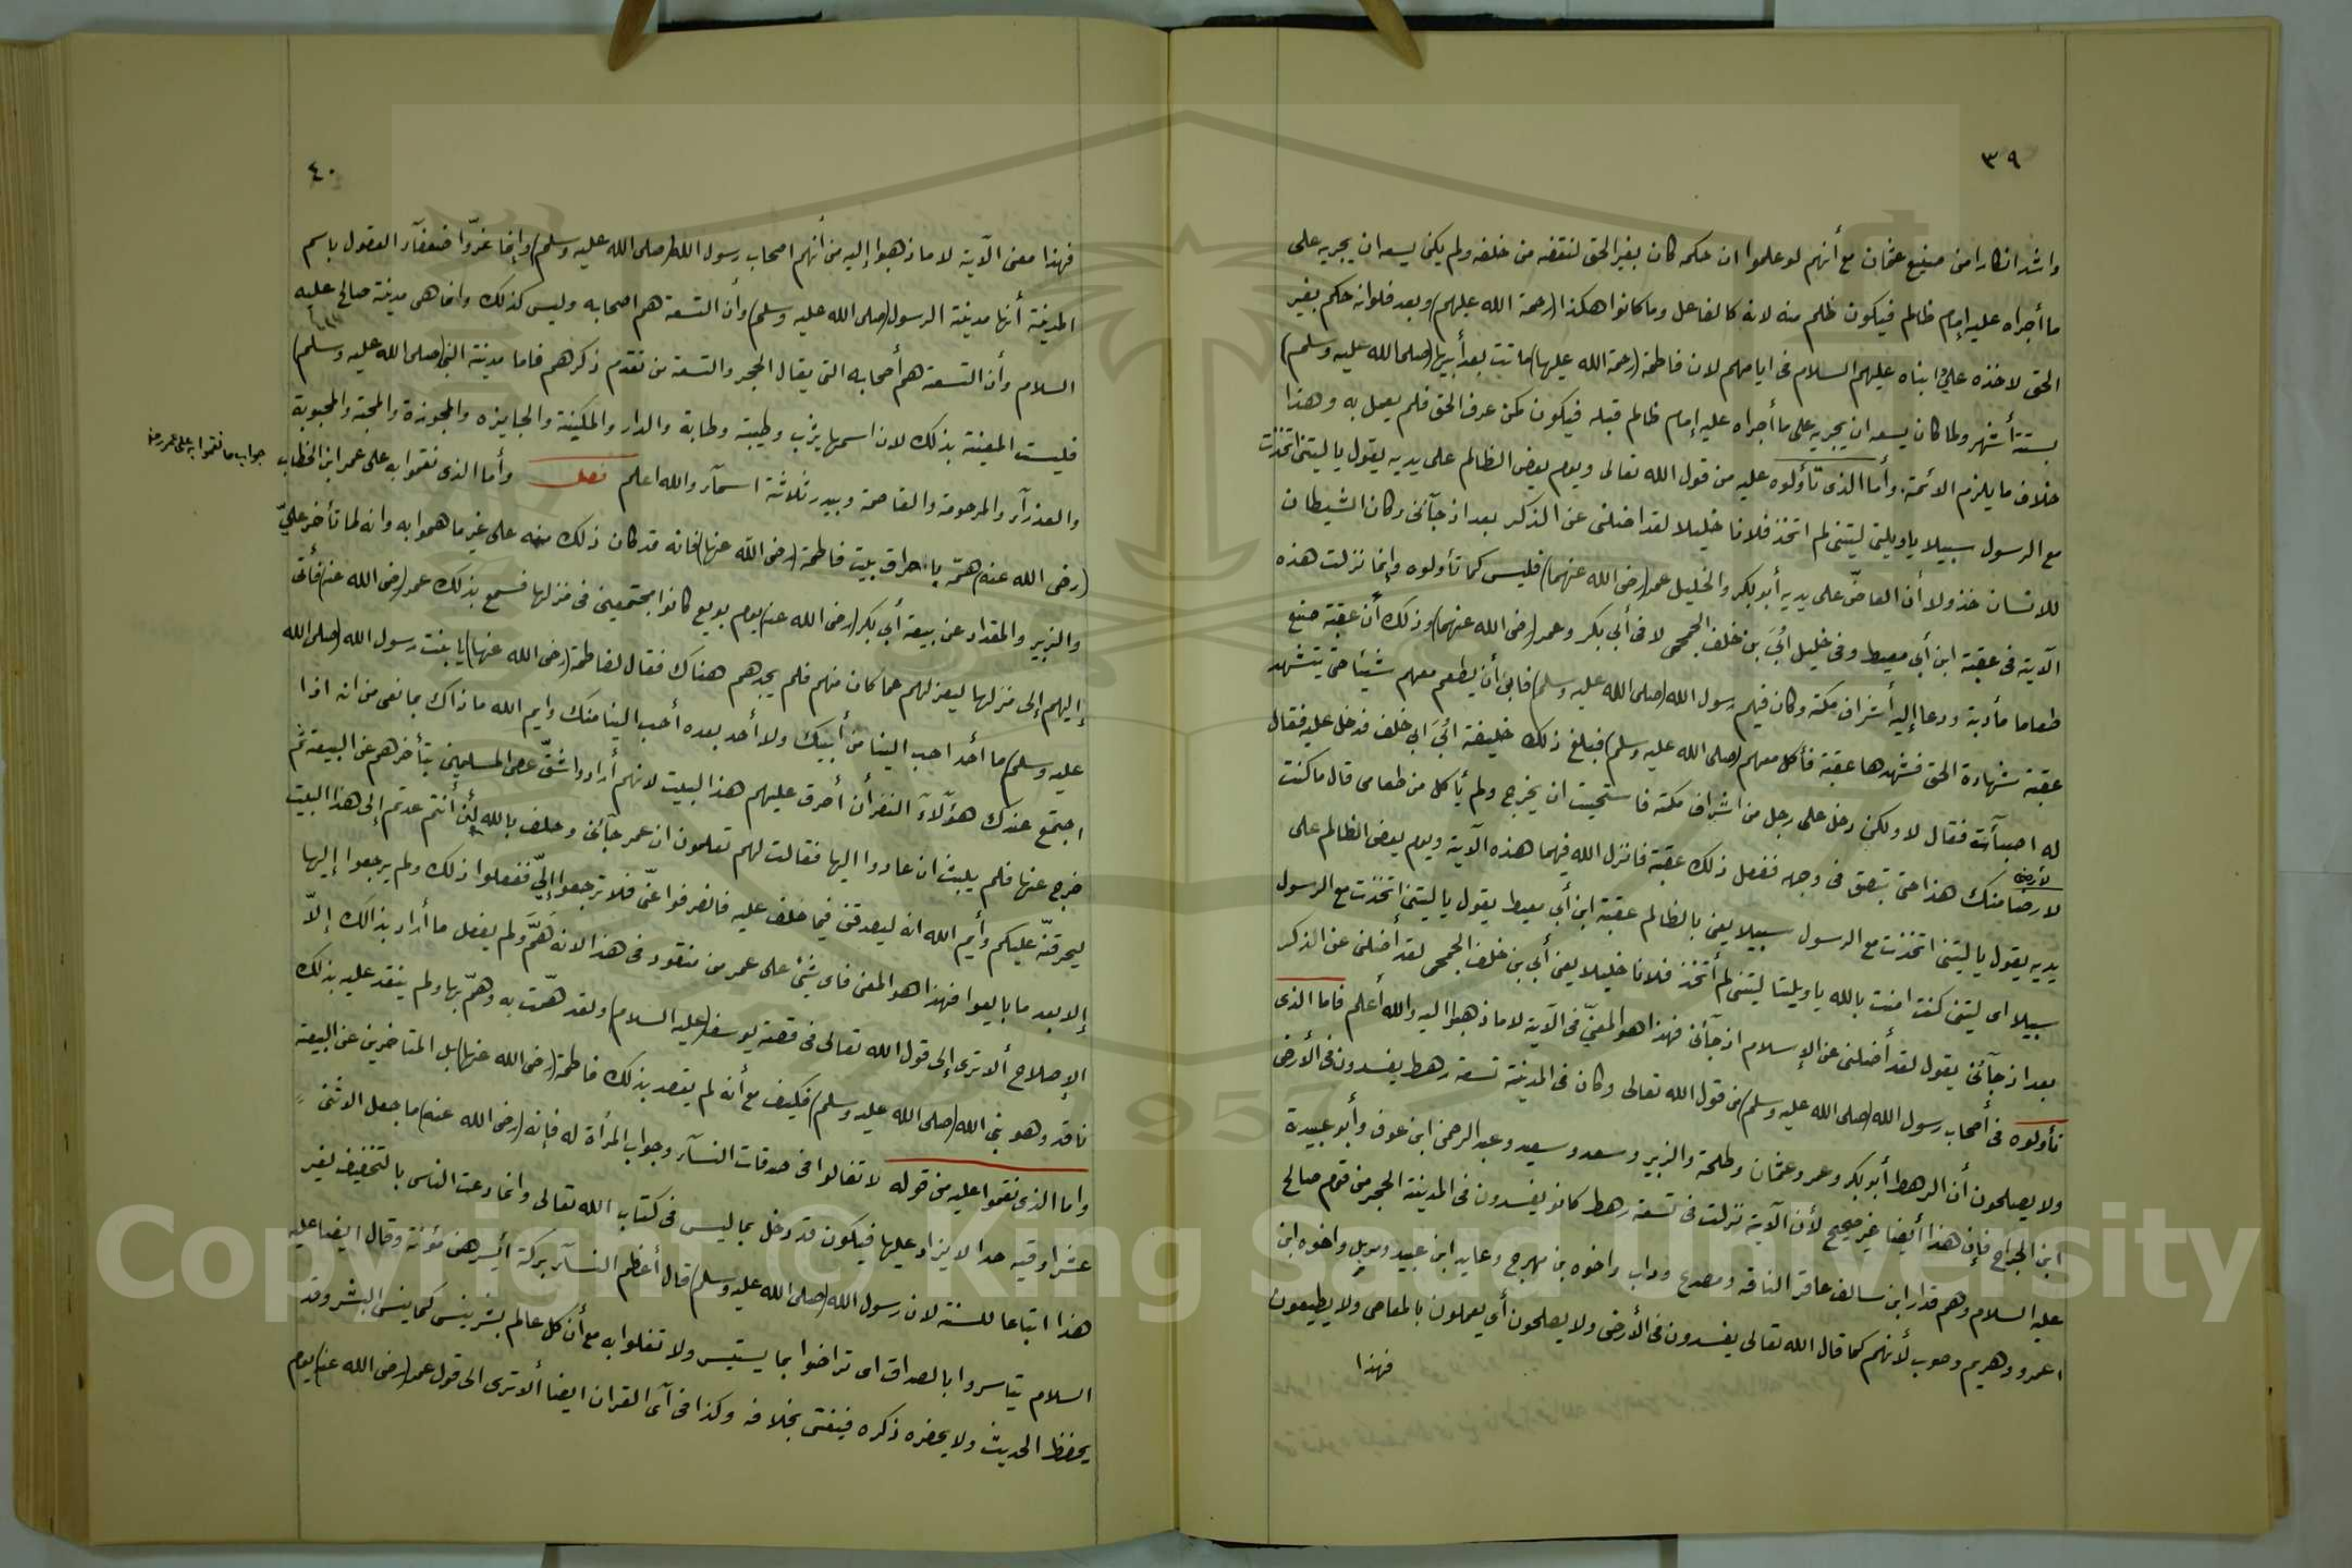 ٣٩
واشد انكارا من صنيع عثمان مع أنهم لو علموا ان حكمه كان بغير الحق لنقضه من خلفه ولم يكن يسعه ان يجريه على
ما أجراه عليه إمام ظالم فيكون ظلم منه لانه كالفاعل وما كانوا هكذا (رحمة الله عليهم) وبعد فلو انه حكم بغير
الحق لاخذه علي وابناه عليهم السلام في ايامهم لان فاطمة (رحمة الله عليها) ماتت بعد أبيها (صلى الله عليه وسلم)
بستة أشهر ولما كان يسعه ان يجريه على ما أجراه عليه إمام ظالم قبله فيكون كمن عرف الحق فلم يعمل به وهذا
خلاف ما يلزم الائمة. وأما الذي تأولوه عليه من قول الله تعالى ويوم يعض الظالم على يديه يقول يا ليتني اتخذت
مع الرسول سبيلا يا ويلتى ليتني لم اتخذ فلانا خليلا لقد اضلني عن الذكر بعد اذ جآئني وكان الشيطان
للانسان خذولا وأن العاضّ على يديه أبو بكر والخليل عمر (رضي الله عنهما) فليس كما تأولوه وإنما نزلت هذه
الآية في عقبة ابن أبي معيط وفي خليل أُبيَ بن خلف الجمحي لا في أبي بكر وعمر (رضي الله عنهما) وذلك أن عقبة صنع
طعاما مأدبة ودعا إليه أشراف مكة وكان فيهم رسول الله (صلى الله عليه وسلم) فابى أن يطعم معهم شيئا حتى يتشهد
عقبة شهادة الحق فشهدها عقبة فأكل معهم (صلى الله عليه وسلم) فبلغ ذلك خليفة أُبيَ ابن خلف فدخل عليه فقال
له اصبأت فقال لا ولكن دخل على رجل من اشراف مكة فاستحيت ان يخرج ولم يأكل من طعامي قال ما كنت
لأرضى
لارضا منك هذا حتى تبصق في وجهه ففعل ذلك عقبة فانزل الله فيهما هذه الآية ويوم يعض الظالم على
يديه يقول يا ليتني اتخذت مع الرسول سبيلا يعني بالظالم عقبة ابن أبي معيط يقول يا ليتني اتخذت مع الرسول
سبيلا اى ليتني كنت امنت بالله يا ويلتا ليتني لم أتخذ فلانا خليلا يعني أبي بن خلف الجمحي لقد أضلني عن الذكر
بعد اذ جآئني يقول لقد أضلني عن الإسلام اذ جآئني فهذا هو المعنيّ في الآية لا ما ذهبوا اليه والله أعلم فاما الذي
تأولوه في أصحاب رسول الله (صلى الله عليه وسلم) من قول الله تعالى وكان في المدينة تسعة رهط يفسدون في الأرض
ولا يصلحون أن الرهط أبو بكر وعمر وعثمان وطلحة والزبير وسعد وسعيد وعبد الرحمن ابن عوف وأبو عبيدة
ابن الجراح فإن هذا أيضا غير صحيح لأن الآية نزلت في تسعة رهط كانو يفسدون في المدينة الحجر من قوم صالح
عليه السلام وهم قدار ابن سالف عاقر الناقه ومصدع وداب واخوه بن مهرج وعايد ابن عبيد واخوه ابن
اعمرو ودهريم وصوب لأنهم كما قال الله تعالى يفسدون في الأرض ولا يصلحون أي يعملون بالمعاصي ولا يطيعون
فهذا
٤٠
فهذا معنى الآية لا ما ذهبوا إليه من أنهم اصحاب رسول الله (صلى الله عليه وسلم) وإنما غرّوا ضعفآء العقول باسم
المدينة أنها مدينة الرسول (صلى الله عليه وسلم) وأن التسعة هم اصحابه وليس كذلك وانما هي مدينة صالح عليه
السلام وأن التسعة هم أصحابه التي يقال الحجر والتسعة من تقدم ذكرهم فاما مدينة النبي (صلى الله عليه وسلم)
فليست المعينة بذلك لان اسمها يثرب وطيبة وطابة والدار والمكينة والجايزه والمجوزة والمحبة والمحبوبة
والعذرآء والمرحومة والقاصمة ويندر ثلاثة اسمآء والله اعلم فصل وأما الذي نقموا به على عمر ابن الخطاب
جواب ما نقموا به على عمر رضه
(رضي الله عنه) همّه باحراق بيت فاطمة (رضي الله عنها) فانه قد كان ذلك منه على غير ما هموا به وانه لما تأخر عليّ
والزبير والمقداد عن بيعة أبي بكر (رضي الله عنه) يوم بويع كانوا مجتمعين في منزلها فسمع بذلك عمر (رضي الله عنه) فأتى
إليهم إلى منزلها ليعزلهم عما كان منهم فلم يجدهم هناك فقال لفاطمة (رضي الله عنها) يا بنت رسول الله (صلى الله
عليه وسلم) ما أحد احب الينا من أبيك ولا أحد بعده أحب الينا منك وايم الله ما ذاك بمانعي من انه اذا
اجتمع عندك هؤلآء النفر أن أحرق عليهم هذا البيت لانهم أرادوا شقّ عصى المسلمين بتأخرهم عن البيعة ثم
خرج عنها فلم يلبث ان عادوا اليها فقالت لهم تعلمون ان عمر جآئني وحلف بالله لئن أنتم عدتم إلى هذا البيت
ليحرقنّه عليكم وأيم الله انه ليصدقن فيما حلف عليه فانصرفوا عنّي فلا ترجعوا إليّ ففعلوا ذلك ولم يرجعوا إليها
إلا بعد ما بايعوا فهذا هو المعنى فاي شئ على عمر من منقود في هذا الانه همَّ ولم يفعل ما أراد بذالك إلاّ
الإصلاح ألا ترى إلى قول الله تعالى في قصة يوسف (عليه السلام) ولقد همّت به وهمّ بها ولم ينقد عليه بذلك
ناقد وهو نبي الله (صلى الله عليه وسلم) فكيف مع أنه لم يقصد بذلك فاطمة (رضي الله عنها) بل المتاخرين عن البيعة
واما الذي نقموا عليه من قوله لا تغالوا في صدقات النسآء وجواب المرأة له فإنه (رضي الله عنه) ما جعل الاثنى
عشر اوقيه حدا لا يزاد عليها فيكون قد دخل بما ليس في كتاب الله تعالى وانما دعت الناس بالتخفيف لغير
هذا اتباعا للسنة لان رسول الله (صلى الله عليه وسلم) قال أعظم النسآء بركة أيسرهن مؤنة وقال ايضا عليه
السلام تياسروا بالصداق اى تراضوا بما يستيسر ولا تغلوا به مع أن كل عالم بشر ينسى كما ينسى البشر وقد
يحفظ الحديث ولا يحضره ذكره فيفتى بخلافه وكذا في آى القران ايضا ألا ترى الى قول عمر (رضي الله عنه) يوم
Copyright © King Saud University
1957